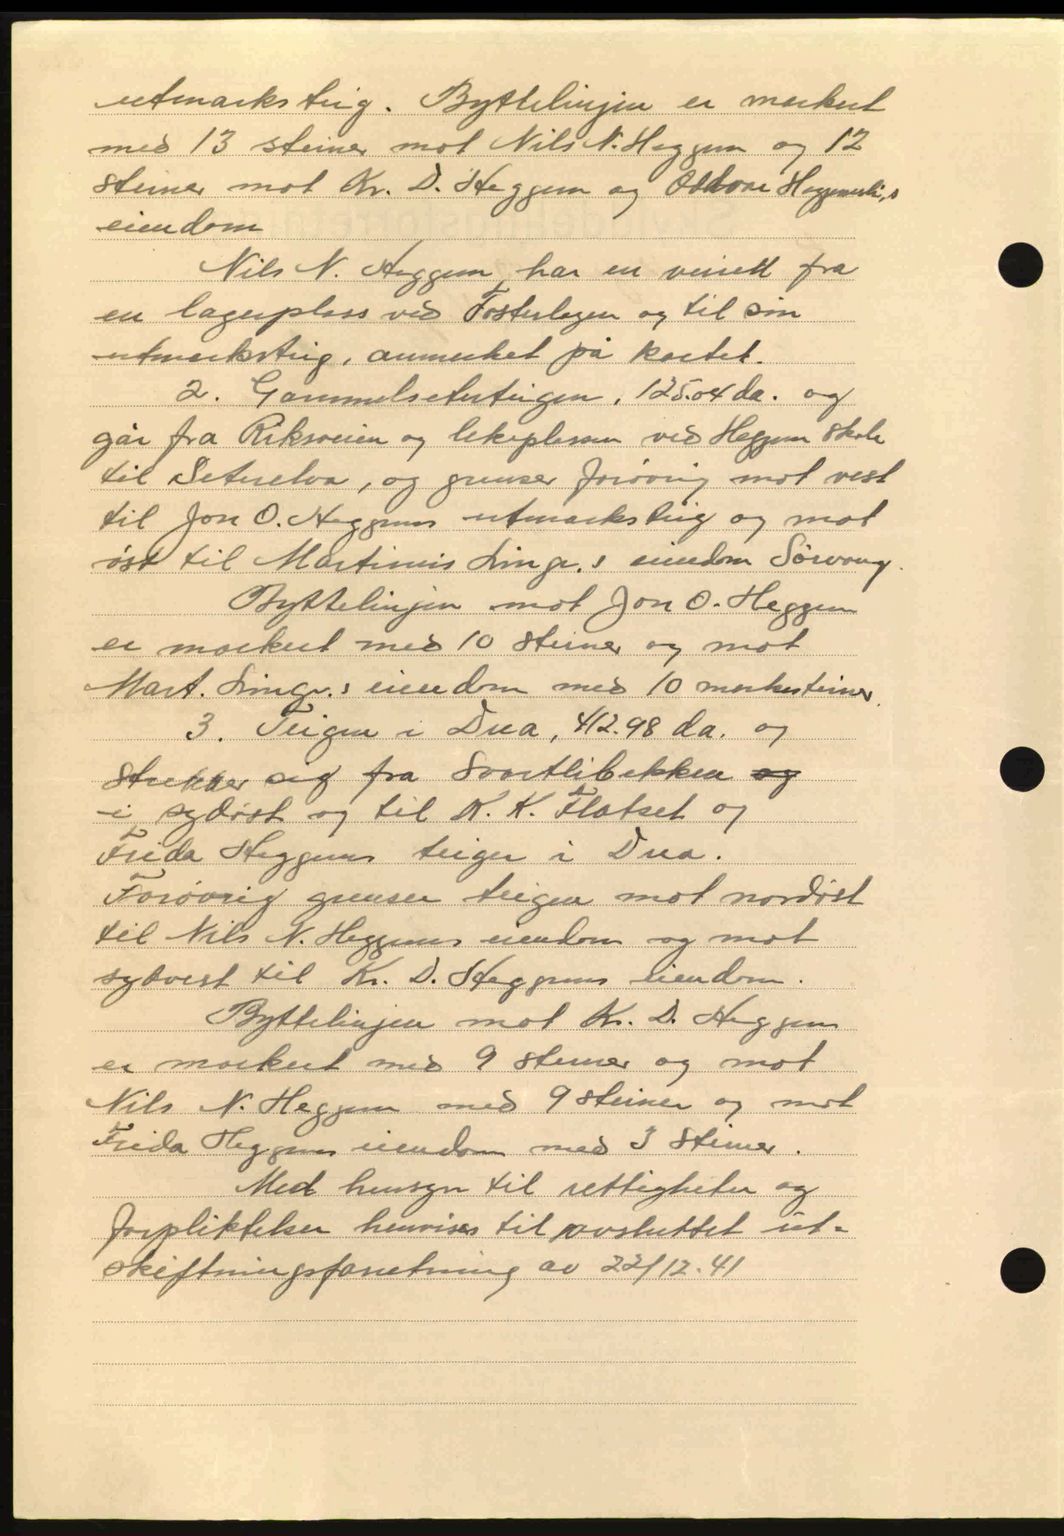 utmarksteig. Byttelinjen er merket
med 13 steiner mot Nils N. Heggem og 12
steiner mot Kr. D. Heggem og Oddvar Heggemsli,s
eiendom
Nils N. Heggem, har en veirett fra
en lagerplass ved og til sin
utmarksteig, anmerket på kartet.
2. Gammelseterteigen, 125.04 da. og
går fra Riksveien og lekeplassen ved Heggem skole
til Seterelva, og grenser forøvrig mot vest
til Jon O. Heggems utmarksteig og mot
øst til Martinus s eiendom Sørvang.
Byttelinjen mot Jon O. Heggem
er markert med 10 steiner og mot
Mart. s eiendom med 10 merkesteiner.
3. Teigen i Drea, 412.98 da. og
strekker seg fra Svartlibekken og
i sydøst og til K. K. Flatset og
Frida Heggems teiger i Drea.
Forøvrig grenser teigen mot nordøst
til Nils N. Heggems eiendom og mot
sydvest til Kr. D. Heggems eiendom.
Byttelinjen mot Kr. D. Heggem
er markert med 9 steiner og mot
Nils N. Heggem med 9 steiner og mot
Frida Heggems eiendom med 3 steiner.
Med hensyn til rettigheter og
forpliktelser henvises til avsluttet ut-
skiftningsforretning av 22/12.41